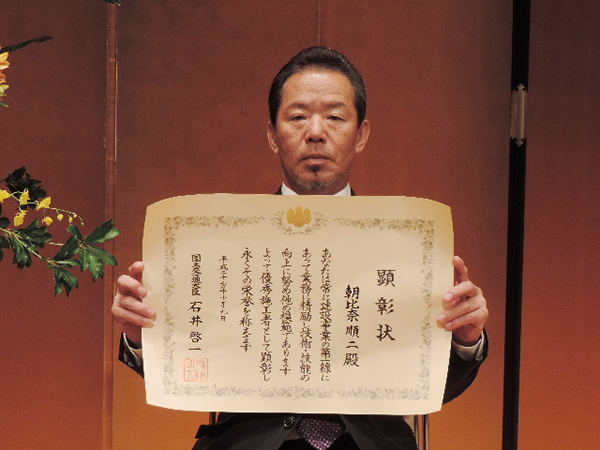 顕彰状
朝比奈順二殿
あなたは常に建設事業の第一線に
あって業務に精励し技術・技能の
向上に努め他の模範であります
よって優秀施工者として顕彰し
永くその栄誉を称えます
平成二十七年十月九日
国土交通大臣 石井啓一